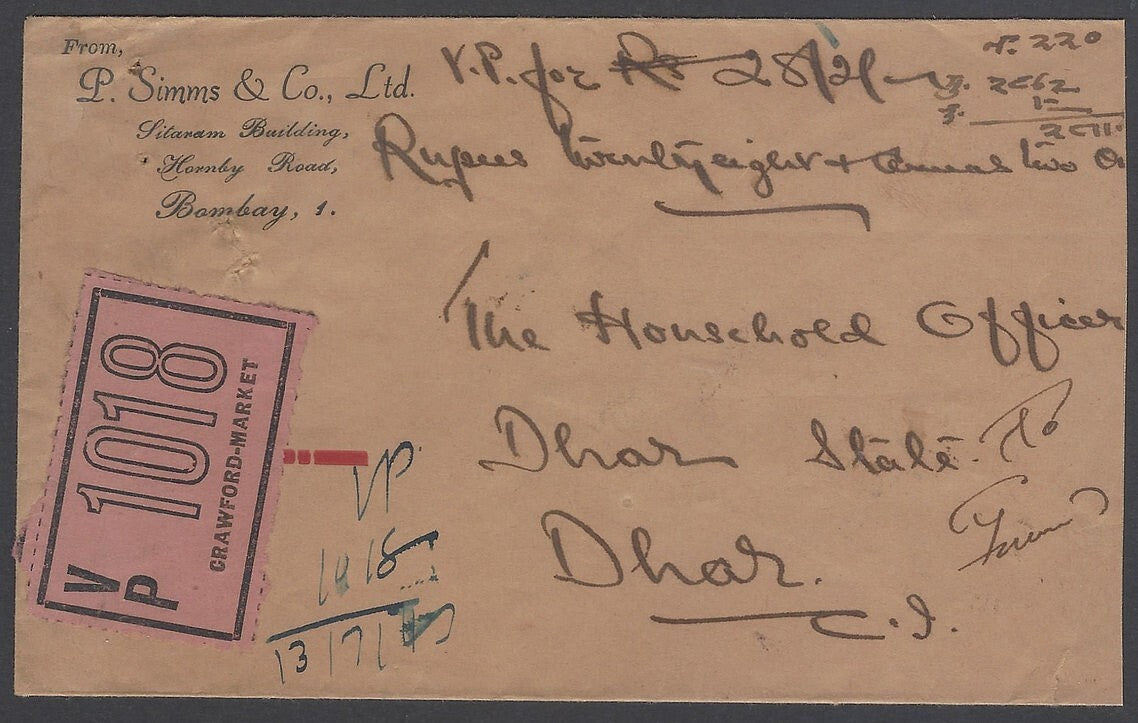 From,
P. Simms & Co., Ltd.
Sitaram Building,
Hornby Road,
Bombay, 1.
V.P. for Rs 28/2/-
Rupees twentyeight + annas two
नं. २२०
The Household Officer
Dhar State
Dhar.
C.I.
VP
1018
CRAWFORD-MARKET
VP
1018
13/7/45